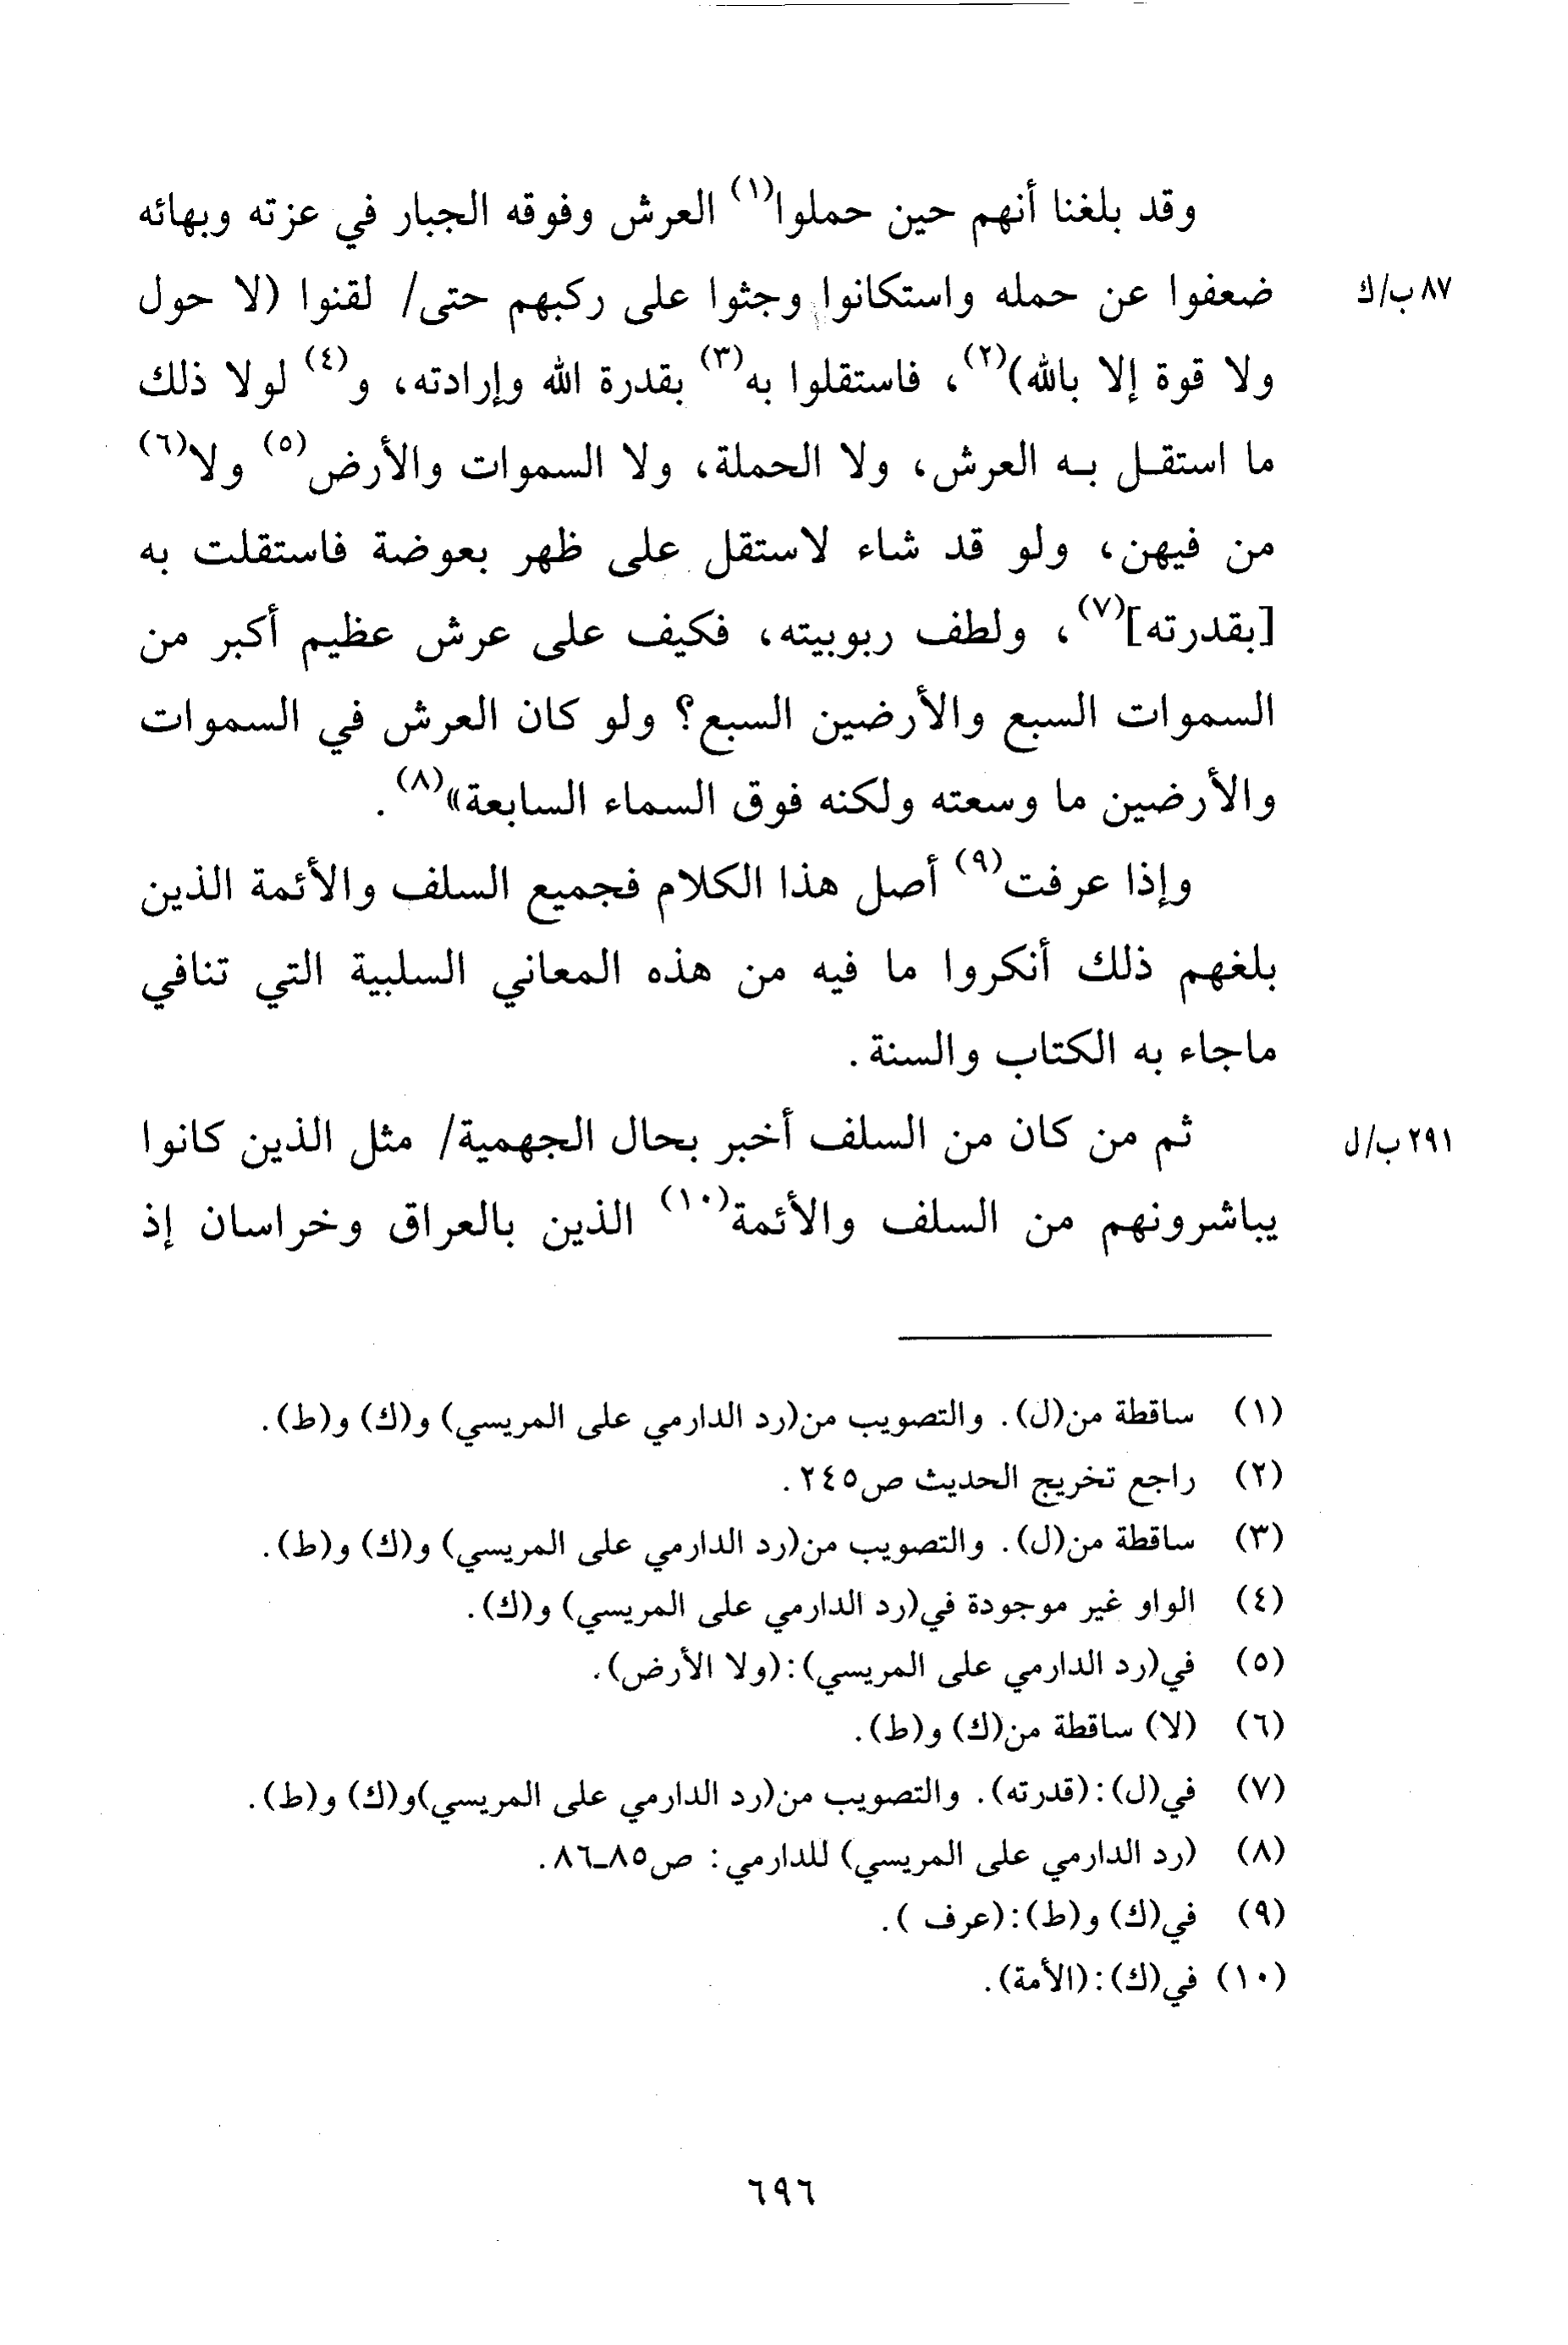 وقد بلغنا أنهم حين حملوا(١) العرش وفوقه الجبار في عزته وبهائه
ضعفوا عن حمله واستكانوا وجثوا على ركبهم حتى/ لقنوا (لا حول
٨٧ب/ك
ولا قوة إلا بالله)(٢)، فاستقلوا به(٣) بقدرة الله وإرادته، و(٤) لولا ذلك
ما استقـل بـه العرش، ولا الحملة، ولا السموات والأرض(٥) ولا(٦)
من فيهن، ولو قد شاء لاستقل على ظهر بعوضة فاستقلت به
[بقدرته](٧)، ولطف ربوبيته، فكيف على عرش عظيم أكبر من
السموات السبع والأرضين السبع؟ ولو كان العرش في السموات
والأرضين ما وسعته ولكنه فوق السماء السابعة»(٨).
وإذا عرفت(٩) أصل هذا الكلام فجميع السلف والأئمة الذين
بلغهم ذلك أنكروا ما فيه من هذه المعاني السلبية التي تنافي
ماجاء به الكتاب والسنة.
ثم من كان من السلف أخبر بحال الجهمية/ مثل الذين كانوا
٢٩١ب/ل
يباشرونهم من السلف والأئمة(١٠) الذين بالعراق وخراسان إذ
(١) ساقطة من(ل). والتصويب من(رد الدارمي على المريسي) و(ك) و(ط).
(٢) راجع تخريج الحديث ص٢٤٥.
(٣) ساقطة من(ل). والتصويب من(رد الدارمي على المريسي) و(ك) و(ط).
(٤) الواو غير موجودة في(رد الدارمي على المريسي) و(ك).
(٥) في(رد الدارمي على المريسي):(ولا الأرض).
(٦) (لا) ساقطة من(ك) و(ط).
(٧) في(ل):(قدرته). والتصويب من(رد الدارمي على المريسي)و(ك) و(ط).
(٨) (رد الدارمي على المريسي) للدارمي: ص٨٥ـ٨٦.
(٩) في(ك) و(ط):(عرف ).
(١٠) في(ك):(الأمة).
٦٩٦